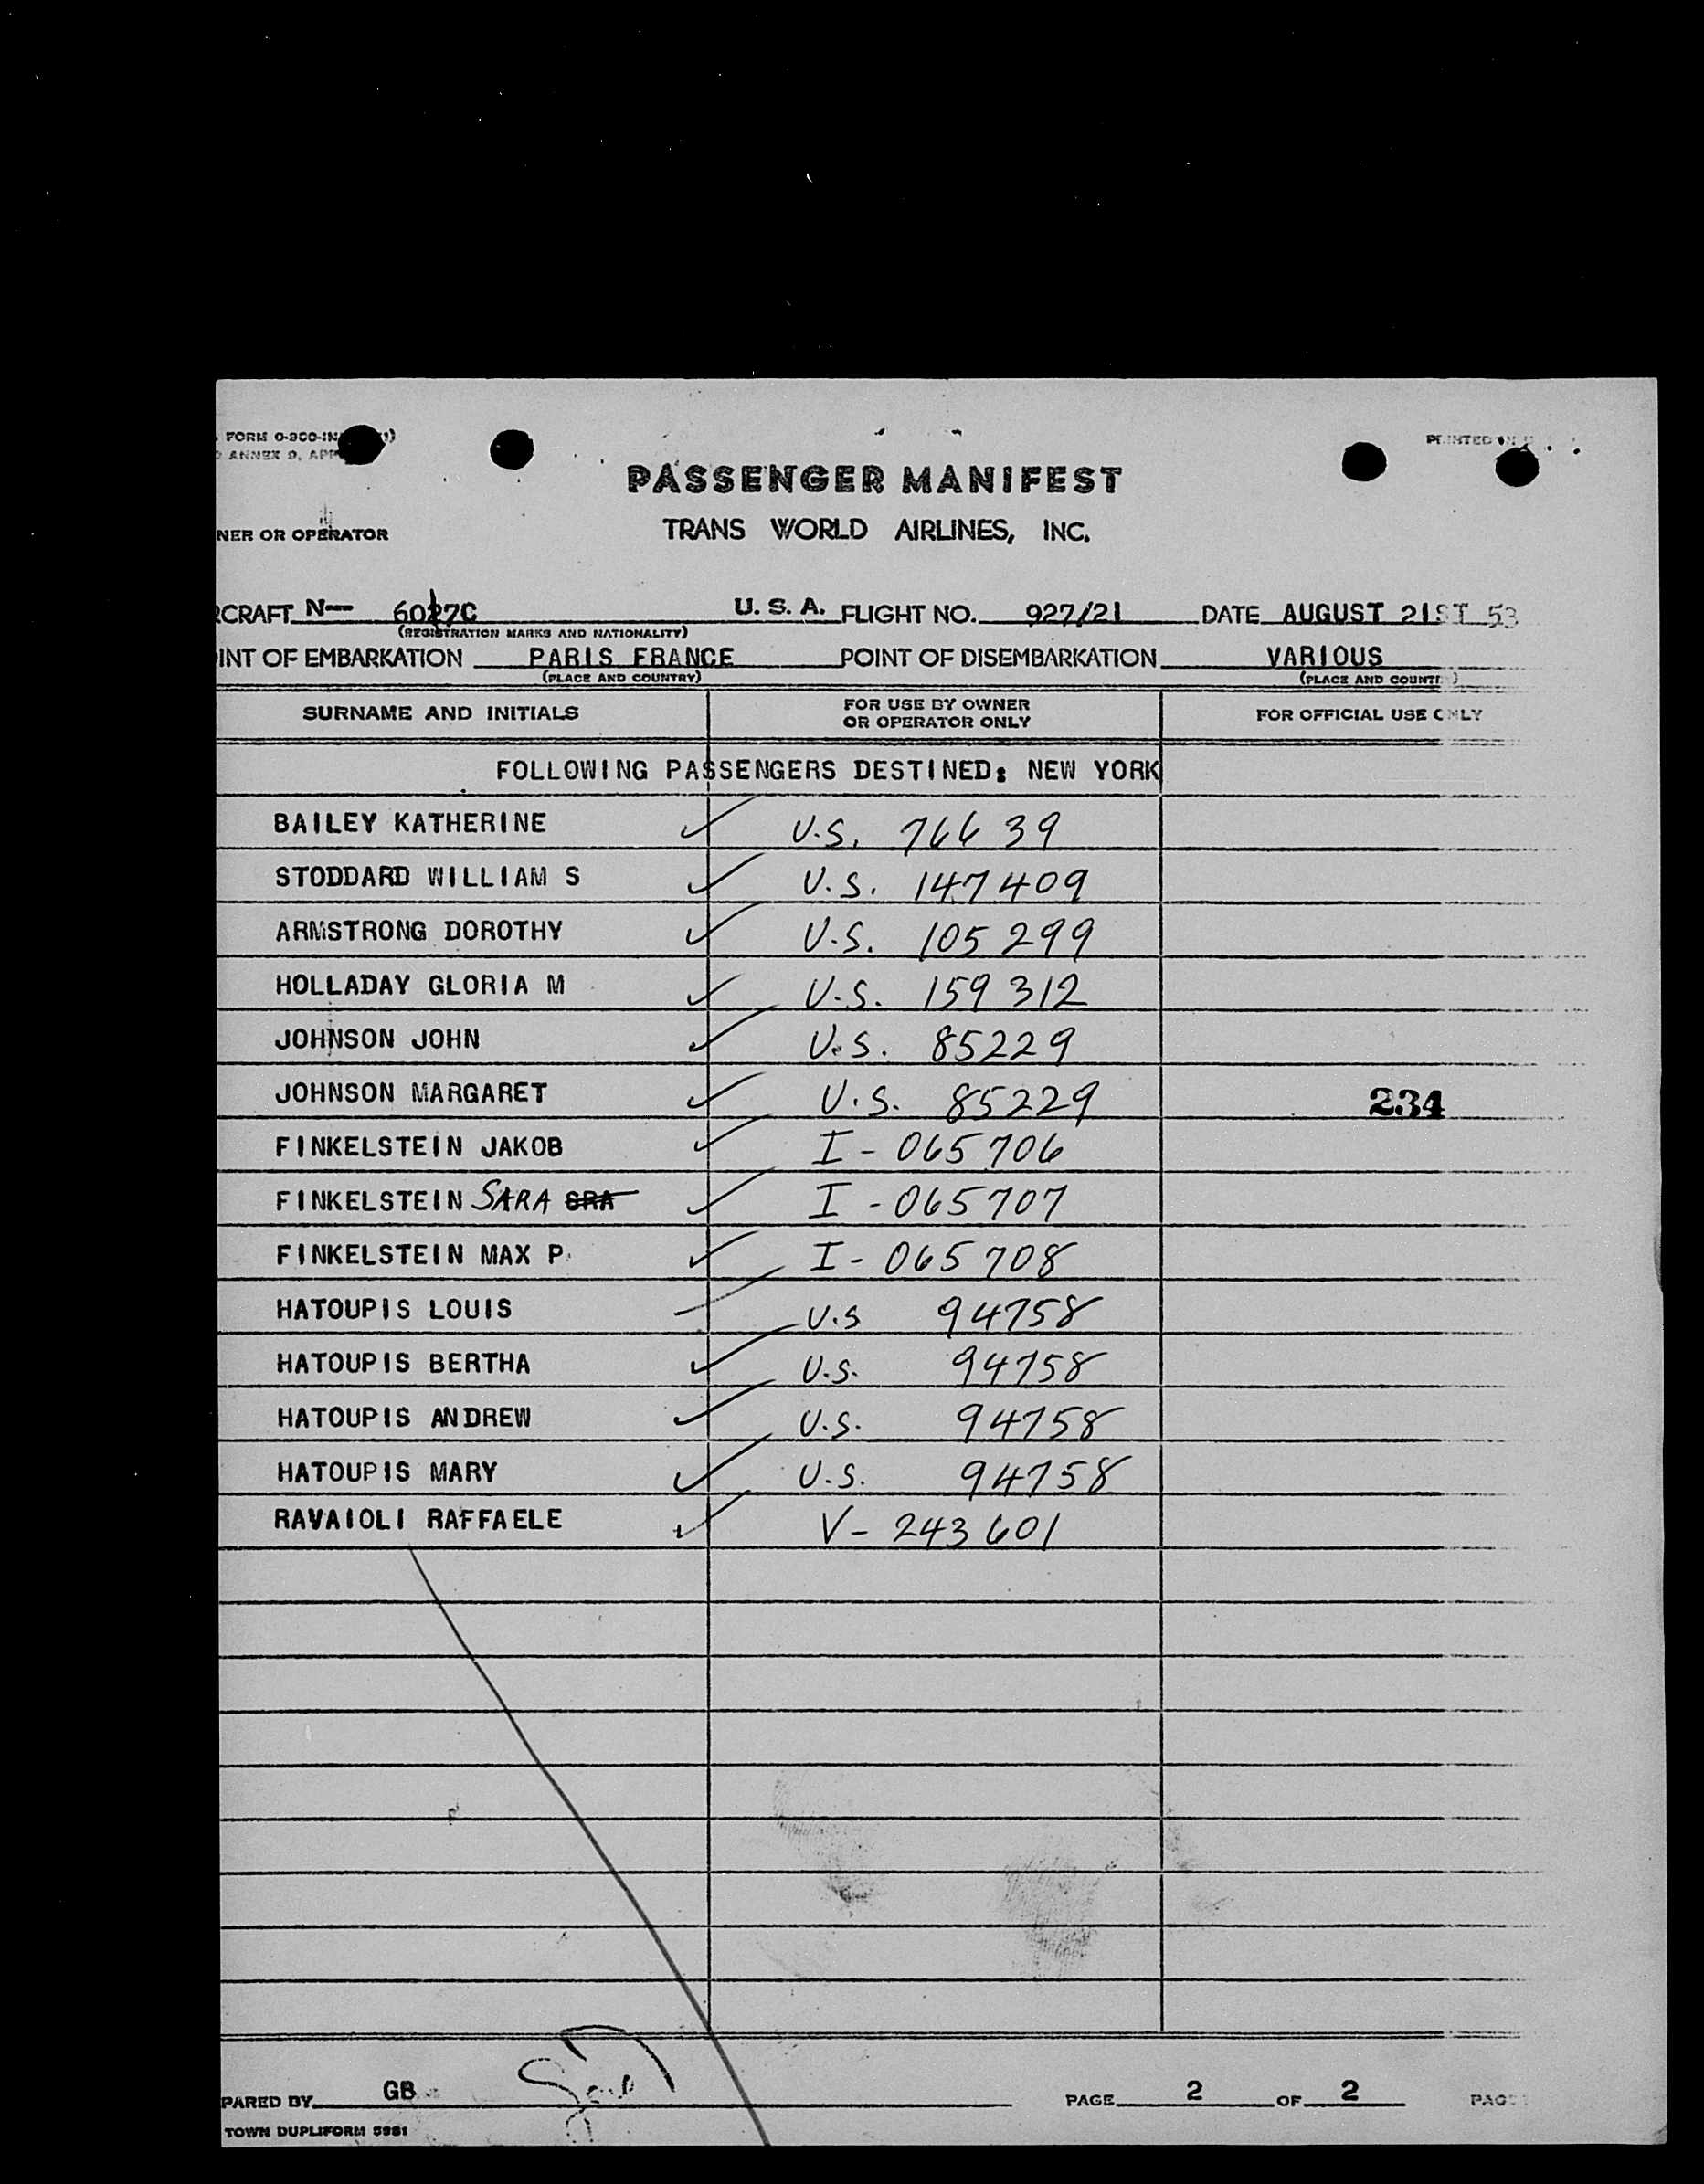 FORM 0-900-IN
ANNEX 9, APP
PRINTED IN U
PASSENGER MANIFEST
NER OR OPERATOR TRANS WORLD AIRLINES, INC.
RCRAFT N— 6017C U. S. A. FLIGHT NO. 927/21 DATE AUGUST 21ST 53
(REGISTRATION MARKS AND NATIONALITY)
INT OF EMBARKATION PARIS FRANCE POINT OF DISEMBARKATION VARIOUS
(PLACE AND COUNTRY) (PLACE AND COUNTRY)
SURNAME AND INITIALS FOR USE BY OWNER OR OPERATOR ONLY FOR OFFICIAL USE ONLY
FOLLOWING PASSENGERS DESTINED: NEW YORK
BAILEY KATHERINE ✓ U.S. 76639
STODDARD WILLIAM S ✓ U.S. 147409
ARMSTRONG DOROTHY ✓ U.S. 105299
HOLLADAY GLORIA M ✓ U.S. 159312
JOHNSON JOHN ✓ U.S. 85229
JOHNSON MARGARET ✓ U.S. 85229 234
FINKELSTEIN JAKOB ✓ I-065706
FINKELSTEIN SARA SRA ✓ I-065707
FINKELSTEIN MAX P ✓ I-065708
HATOUPIS LOUIS U.S 94758
HATOUPIS BERTHA ✓ U.S. 94758
HATOUPIS ANDREW ✓ U.S. 94758
HATOUPIS MARY ✓ U.S. 94758
RAVAIOLI RAFFAELE ✓ V-243601
PARED BY GB PAGE 2 OF 2 PAG
TOWN DUPLIFORM 5981